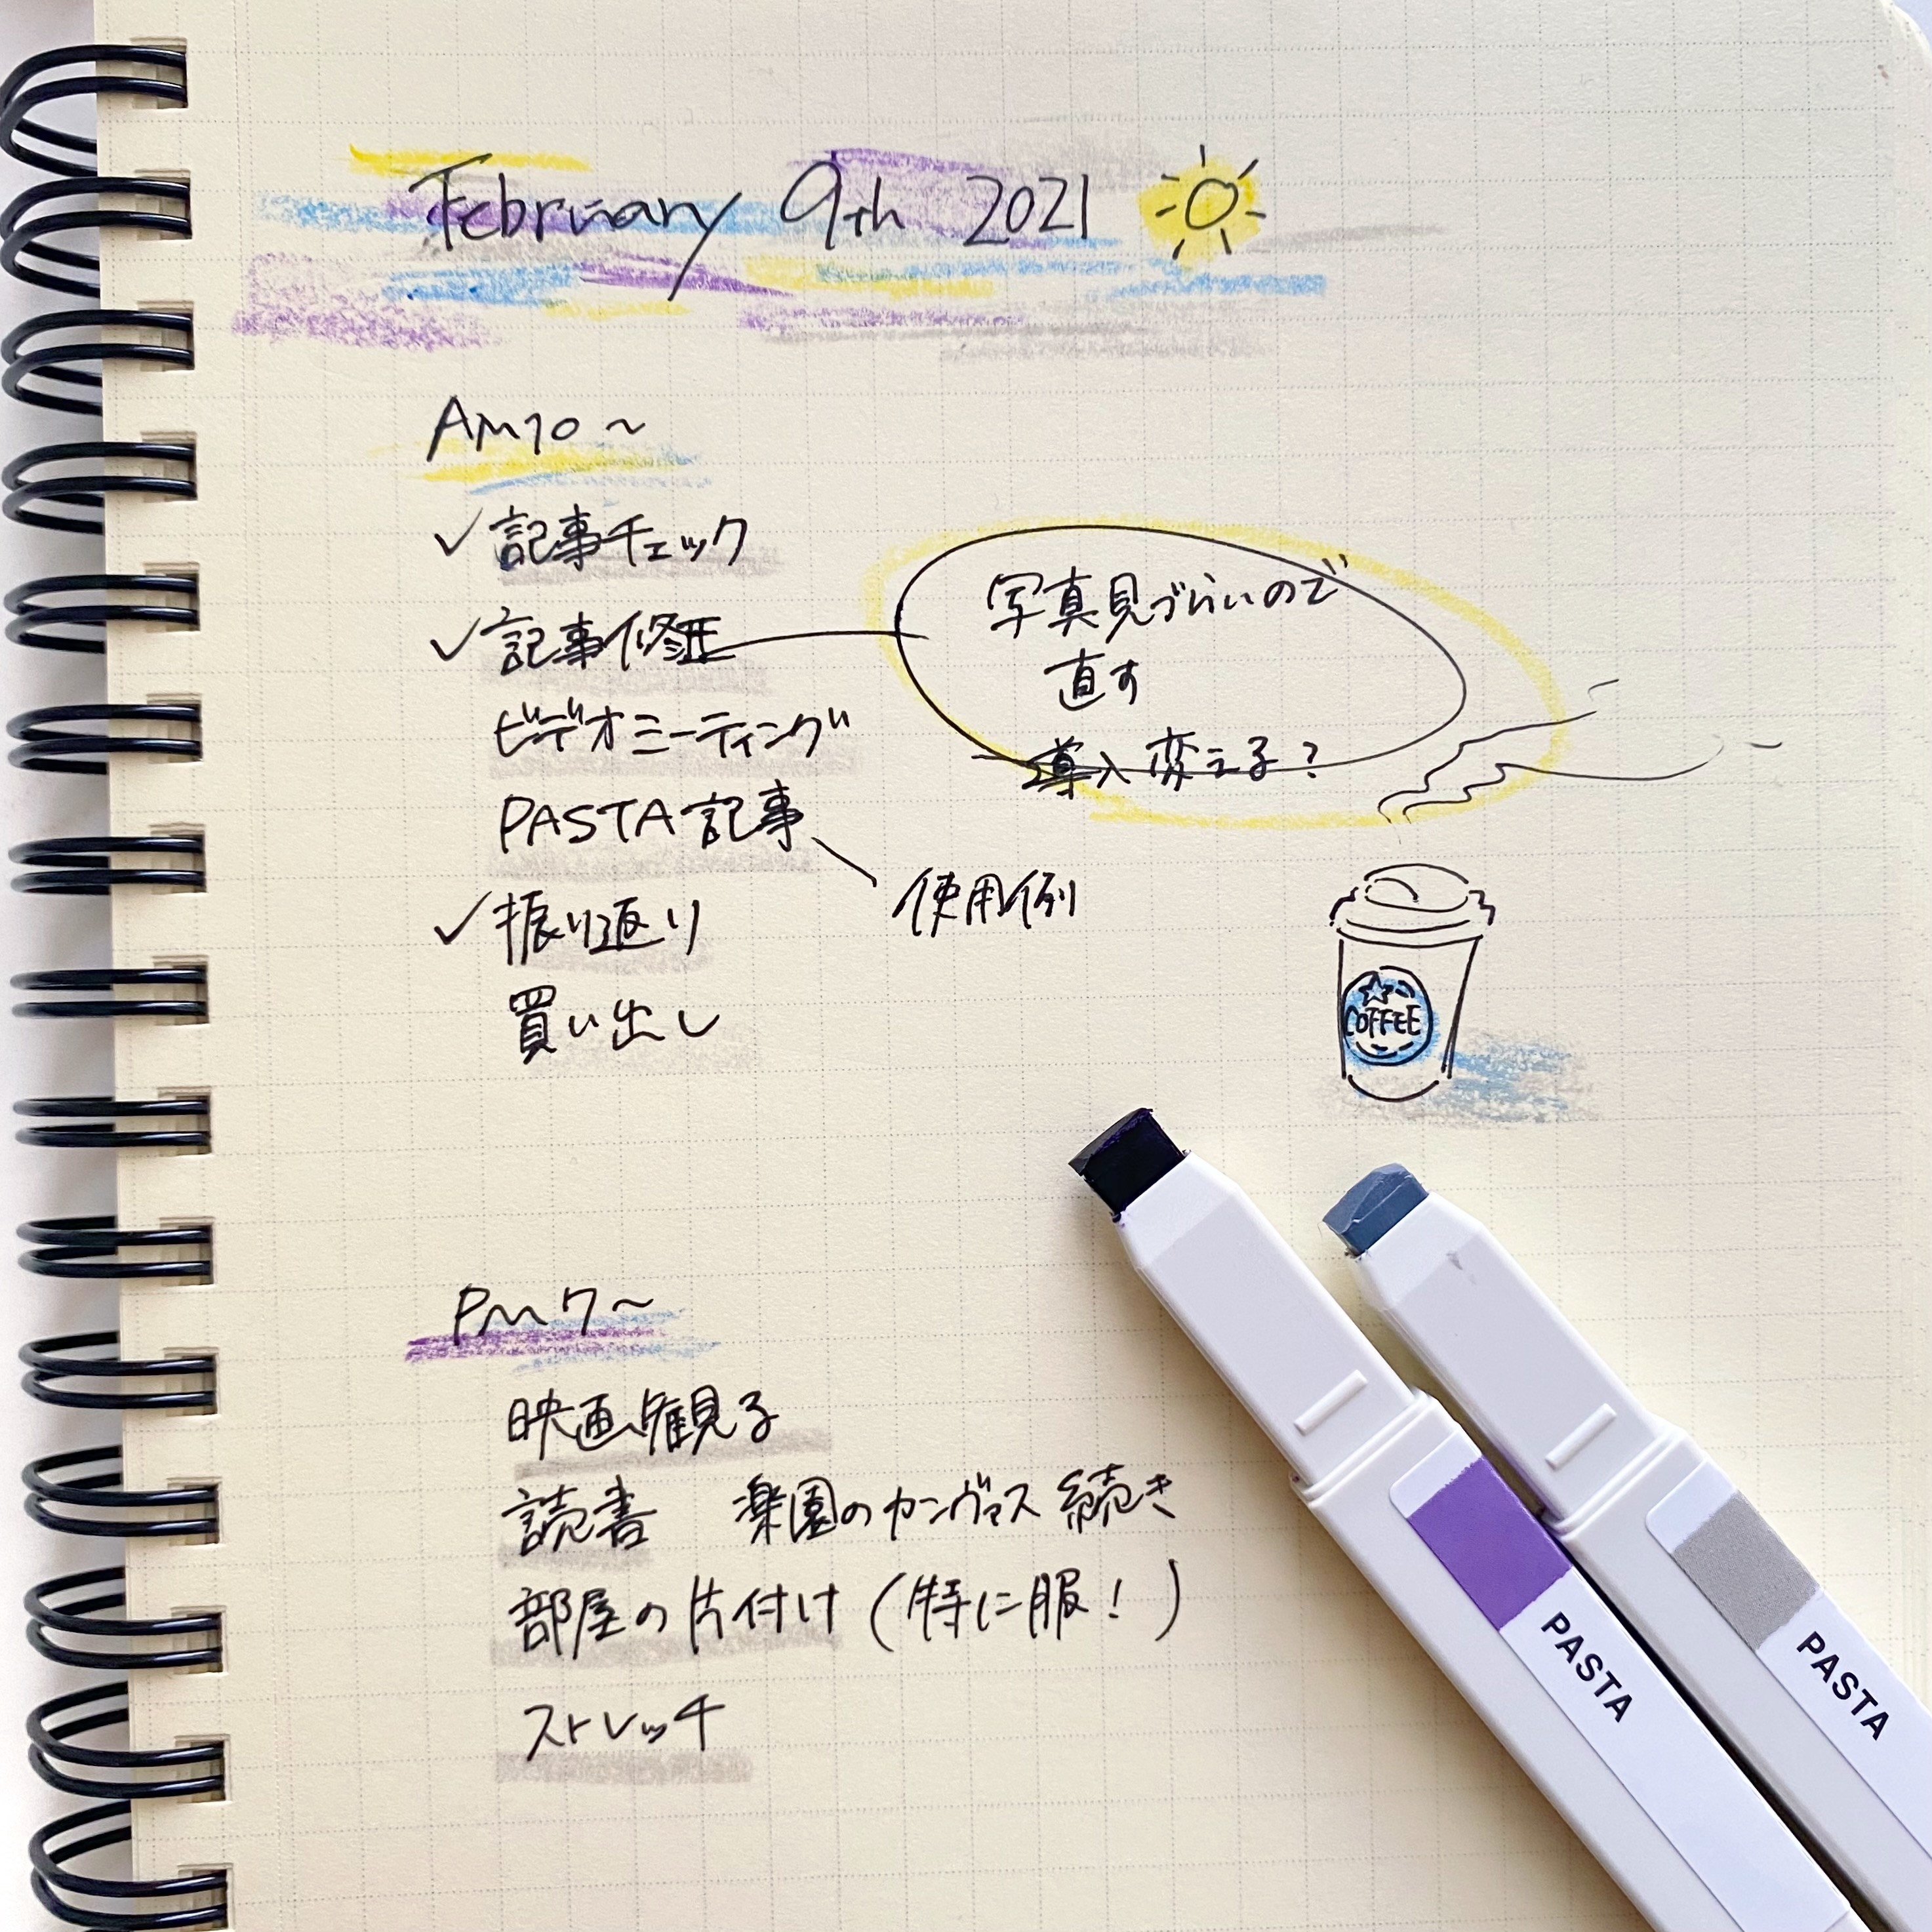 February 9th 2021
AM10～
✓記事チェック
✓記事修正
写真見づらいので
直す
導入変える？
ビデオミーティング
PASTA記事
使用例
✓振り返り
買い出し
COFFEE
PM7～
映画観る
読書 楽園のカンヴァス 続き
部屋の片付け（特に服！）
ストレッチ
PASTA
PASTA